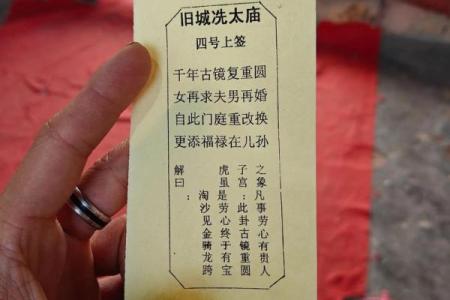 旧城冼太庙
四号上签
千年古镜复重圆
女再求夫男再婚
自此门庭重改换
更添福禄在儿孙
解曰：
淘沙见金骑龙跨
虎虽是劳心终于有宝
子宫：此卦古镜重圆
之象凡事劳心有贵人